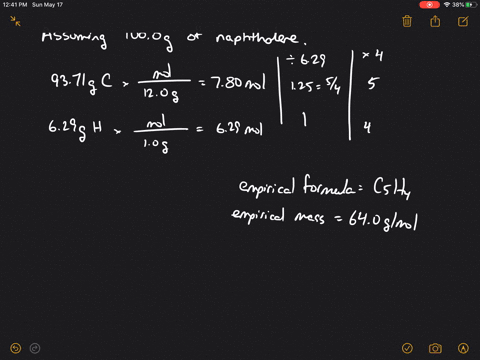 12:41 PM Sun May 17
38%
Assuming 100.0g of naphthalene.
93.71g C × mol / 12.0g = 7.80 mol
÷ 6.29
1.25 = 5/4
× 4
5
6.29g H × mol / 1.0g = 6.29 mol
1
4
empirical formula = C5H4
empirical mass = 64.0 g/mol